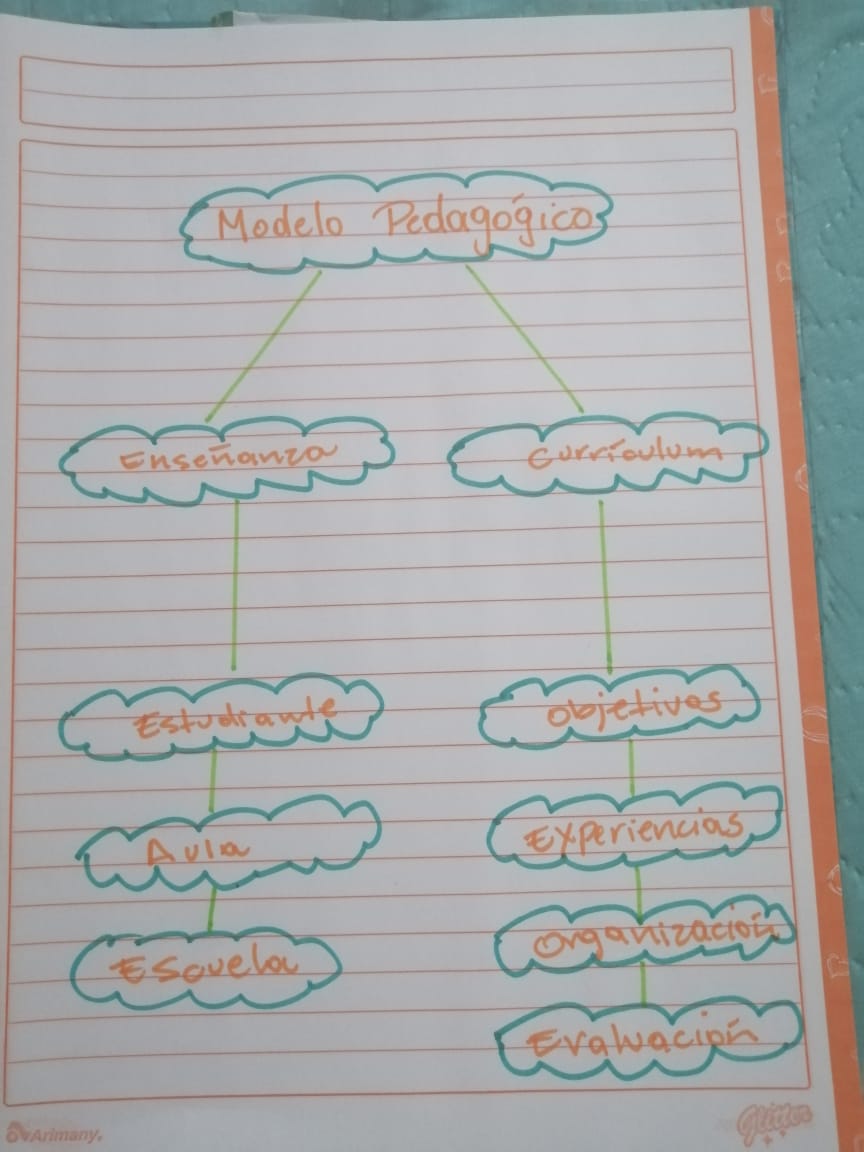 Modelo Pedagógico
Enseñanza
Currículum
Estudiante
Objetivos
Aula
Experiencias
Escuela
Organización
Evaluación
Arimany.
Glitter